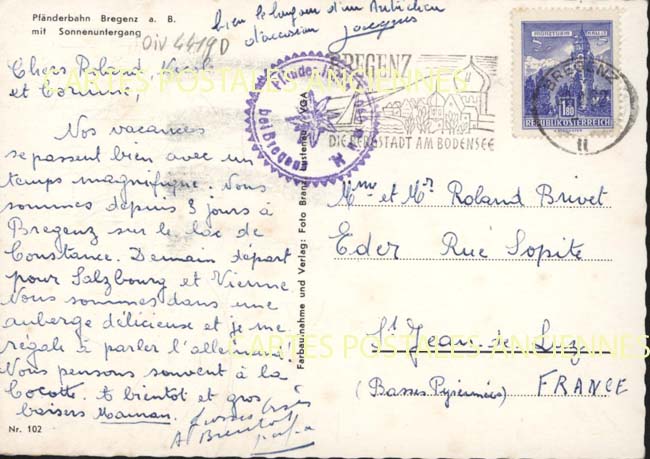 Pfänderbahn Bregenz a. B.
mit Sonnenuntergang
OIV 4419D
bien le bonjour d'un Autrichien
d'occasion Jacques
Chers Roland,
et Corinne,
Nos vacances
se passent bien avec un
temps magnifique. Nous
sommes depuis 3 jours à
Bregenz sur le lac de
Constance. Demain départ
pour Salzbourg et Vienne
Nous sommes dans une
auberge délicieuse et je me
régale à parler l'allemand.
Nous pensons souvent à la
Cocotte. A bientôt et gros
baisers Maman.
A Bientôt
papa
Nr. 102
Farbaufnahme und Verlag: Foto Branz, Lustenau VGA
Pfänder
bei Bregenz
BREGENZ
DIE FESTSTADT AM BODENSEE
MÜNZTURM HALL
S S
1.80
REPUBLIK ÖSTERREICH
BREGENZ
11
Mme et Mr Roland Brivet
Eder Rue Sopite
St Jean de Luz
(Basses Pyrénées) FRANCE
CARTES POSTALES ANCIENNES
CARTES POSTALES ANCIENNES